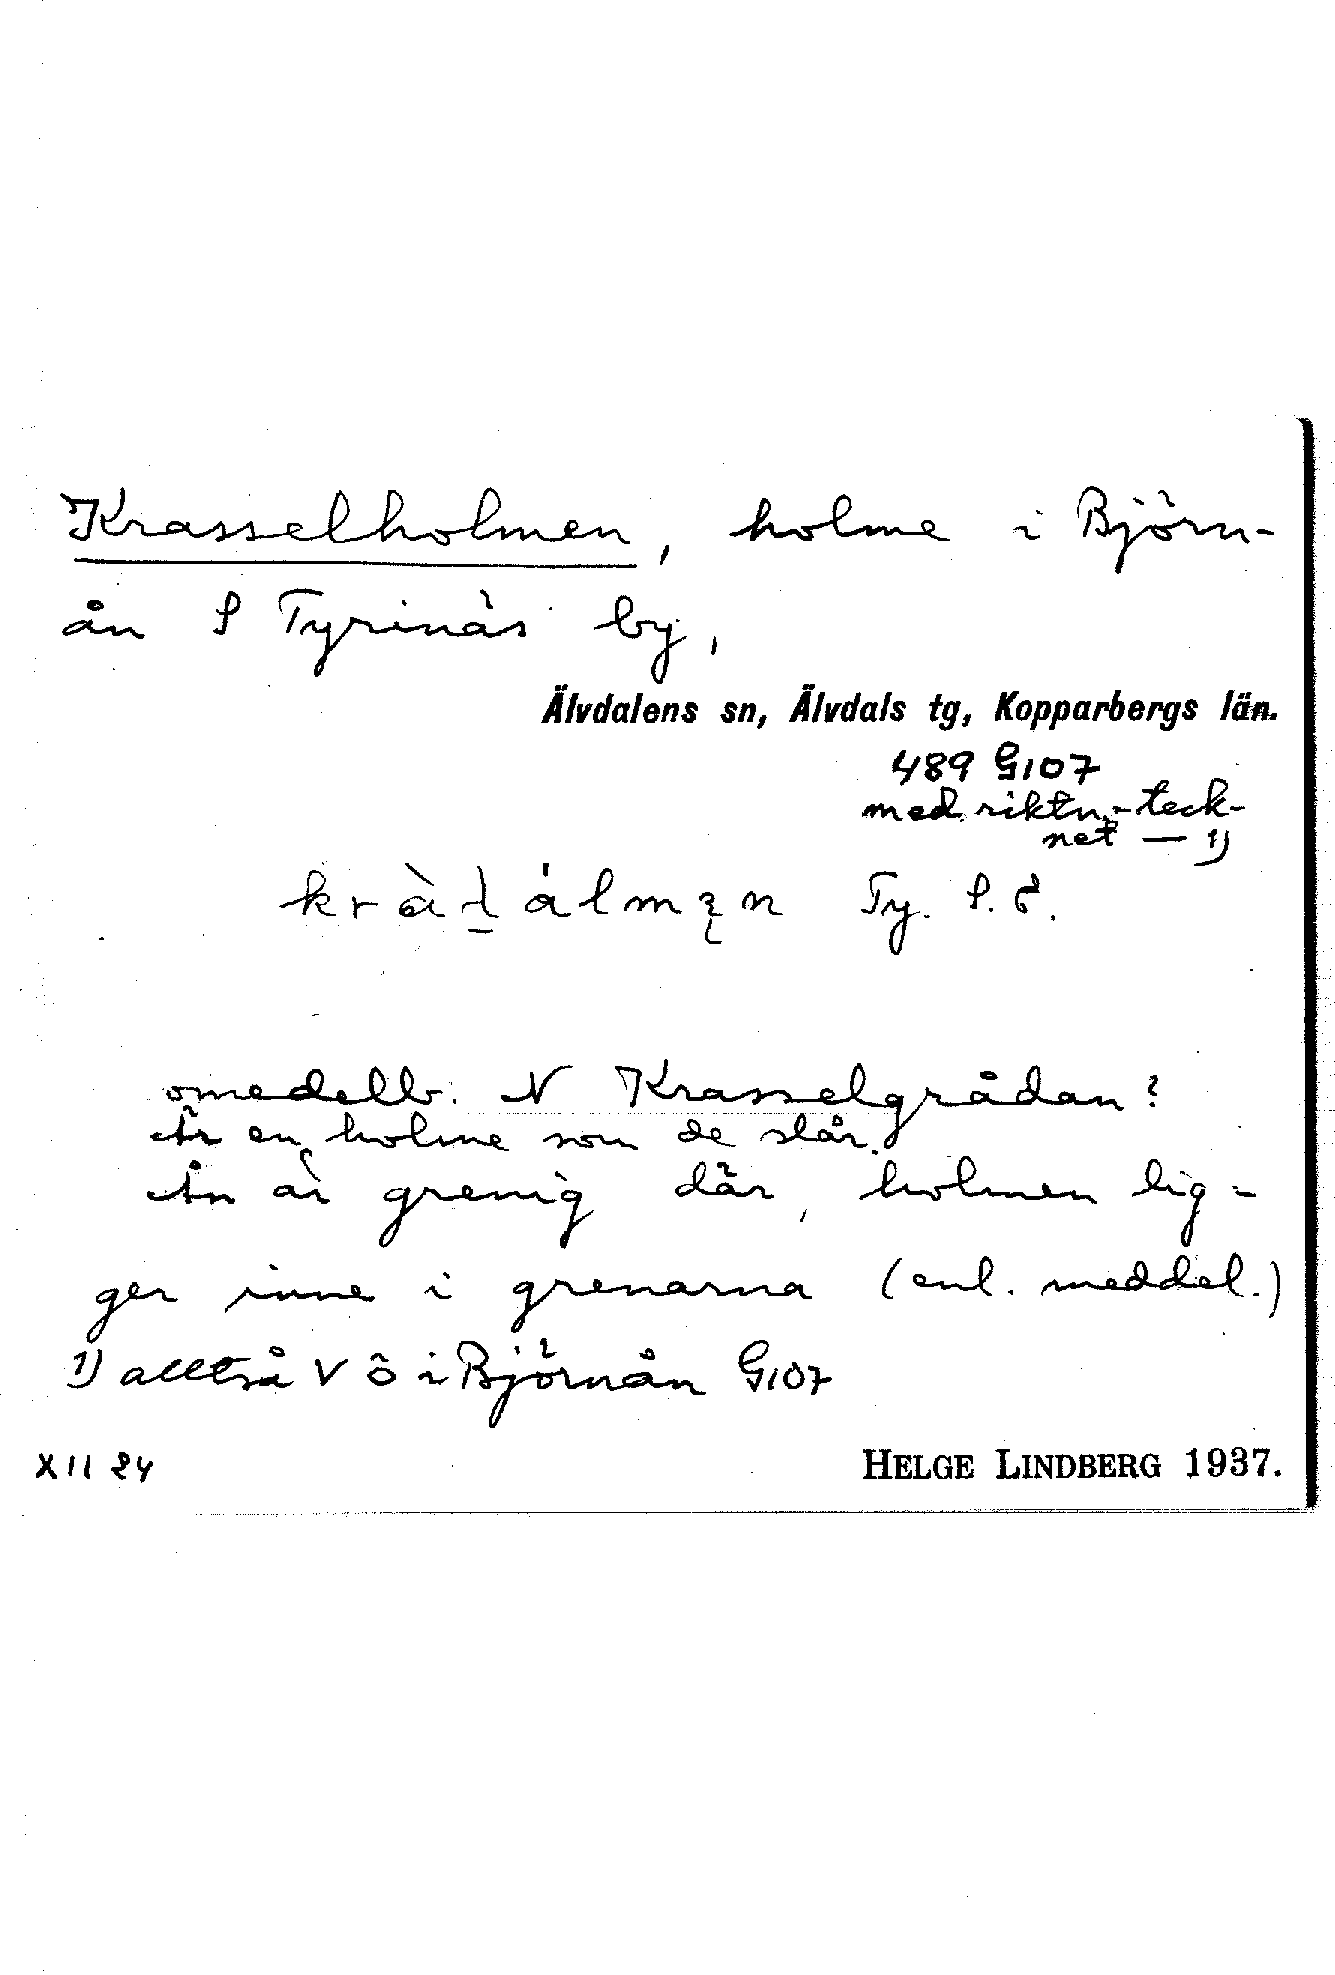 Krasselholmen, holme i Björn-
ån S Tyrinäs by,
Älvdalens sn, Älvdals tg, Kopparbergs län.
489 G107
med riktn.-teck-
net — 1)
Ty. S. E.
omedelb. N Krasselgrådan?
Är en holme som de slår.
Ån är grenig där, holmen lig=
ger inne i grenarna (enl. meddel.)
1) alltså V ö i Björnån G107
XII 24
HELGE LINDBERG 1937.